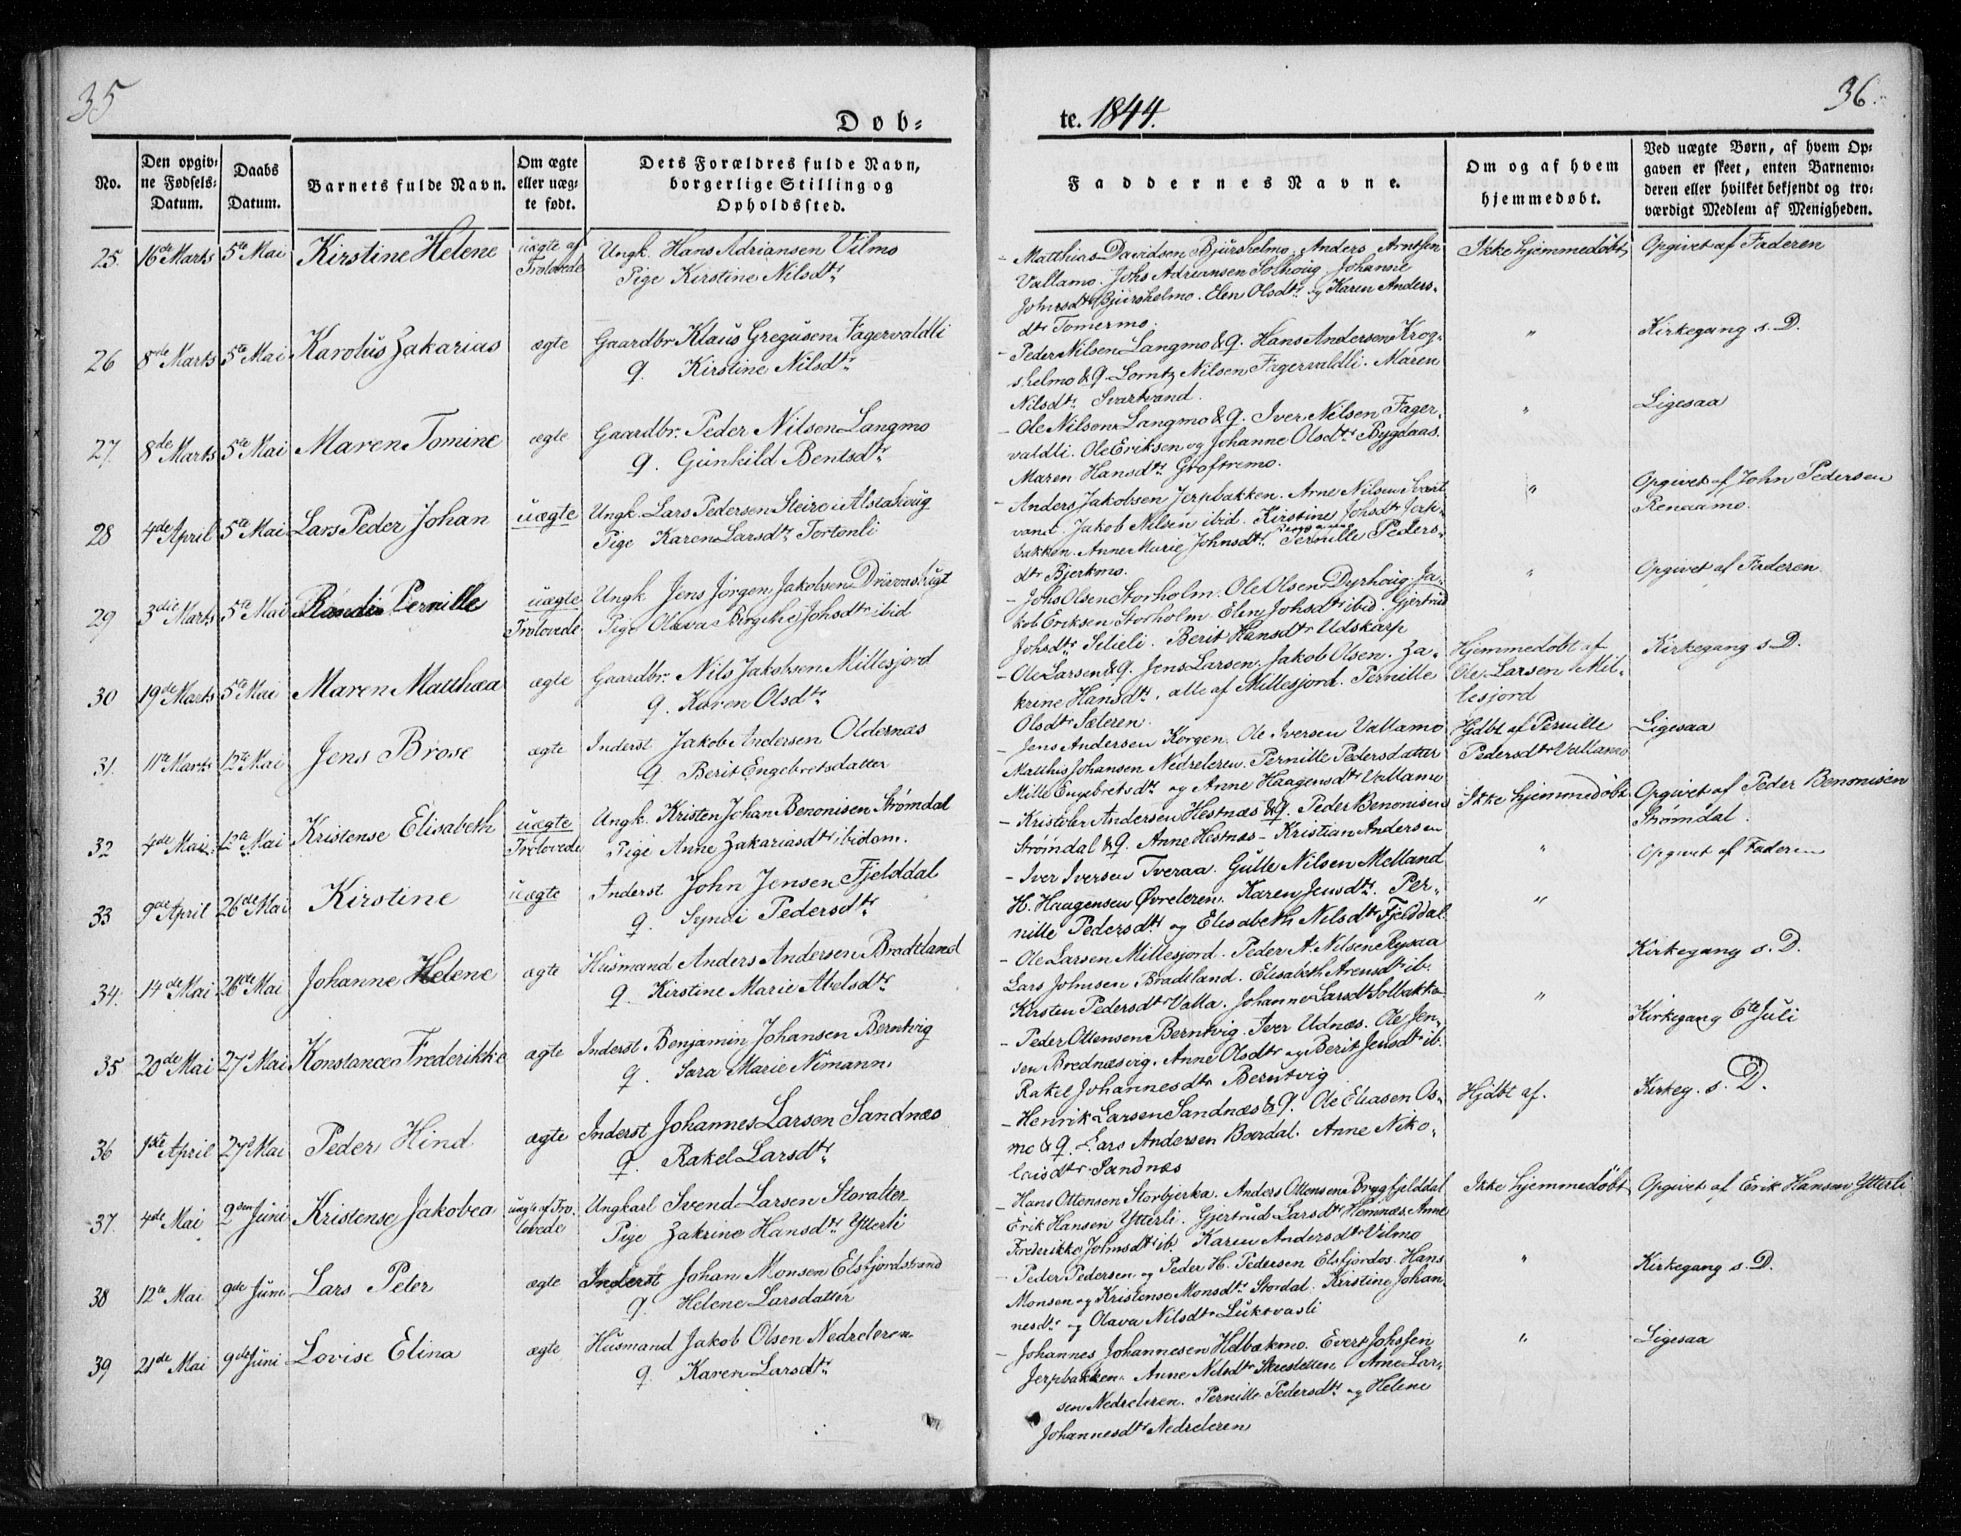 35
Døb-
te. 1844.
36.
No.
Den opgiv-
ne Fødsels-
Datum.
Daabs
Datum.
Barnets fulde Navn.
Om ægte
eller uæg-
te født.
Dets Forældres fulde Navn,
borgerlige Stilling og
Opholdssted.
Faddernes Navne.
Om og af hvem
hjemmedøbt.
Ved uægte Børn, af hvem Op-
gaven er skeet, enten Barnemo-
deren eller hvilket bekjendt og tro-
værdigt Medlem af Menigheden.
25. 16de Marts 5te Mai Kirstine Helene uægte af Trolovede
Ungk. Hans Adriansen Vilmo
Pige Kirstine Nilsdtr
- Matthias Davidsen Bjurshelmo. Anders Arntsen
Vallamo. Johs Adriansen Solhoug. Johanne
Johnsdtr Bjurshelmo. Elen Olsdtr og Karen Anders-
dtr Tomermo.
Ikke hjemmedøbt
Opgivet af Faderen
26 8de Marts 5te Mai Karolus Zakarias ægte
Gaardbr Klaus Gregusen Fagervaldli
q. Kirstine Nilsdtr
- Peder Nilsen Langmo & q. Hans Andersen Krog-
shelmo & q Lorntz Nilsen Fagervaldli. Maren
Nilsdtr Svartvand.
"
Kirkegang s. D.
27. 8de Marts 5te Mai Maren Tomine ægte
Gaardbr. Peder Nilsen Langmo
q. Gunhild Bentsdtr
- Ole Nilsen Langmo & q. Iver Nilsen Fager-
valdli. Ole Eriksen og Johanne Olsdtr Bygdaas.
Maren Hansdtr Groftremo.
"
Ligesaa
28 4de April 5te Mai Lars Peder Johan uægte
Ungk. Lars Pedersen Steiro i Alstahoug
Pige Karen Larsdtr Tortenli
- Anders Jakobsen Jerpbakken. Arne Nilsen Svart
vand. Jakob Nilsen ibid. Kirstine Johsdtr Jerp-
bakken. Anne Marie Johnsdtr Pernille Peders-
dtr Bjerkmo.
"
Opgivet af John Pedersen
Renaamo.
29 3die Marts 5te Mai Pernille uægte Trolovede
Ungk Jens Jørgen Jakobsen
Pige Olava Birgithe Johsdtr ibid
- Johs Olsen Storholm. Ole Olsen Dyrhoug. Ja-
kob Eriksen Storholm Elen Johsdtr ibid. Gjertrud
Johsdtr Silieli. Berit Hansdtr Udskarp
"
Opgivet af Faderen
30 19de Marts 5te Mai Maren Matthæa ægte
Gaardbr. Nils Jakobsen Millesjord
q. Karen Olsdtr
- Ole Larsen & q. Jens Larsen. Jakob Olsen. Za-
krine Hansdtr, alle af Millesjord. Pernille
Olsdtr Sæteren.
Hjemmedøbt af
Ole Larsen Mil-
lesjord
Kirkegang s D.
31. 11te Marts 12te Mai Jens Brose ægte
Inderst Jakob Andersen Oldernæs
q Berit Engebretsdatter
- Jens Andersen Korgen. Ole Iversen Vallamo
Matthis Johansen Nedreleren. Pernille Pedersdatter
Mille Engebretsdtr og Anne Haagensdtr Vallamo
Hjdbt af Pernille
Pedersdtr Vallamo
Ligesaa
32 4de Mai 12te Mai Kristense Elisabeth uægte Trolovede
Ungk. Kristen Johan Benonisen Strømdal
Pige Anne Zakariasdtr ibidem.
- Kristofer Andersen Hestnæs & q. Peder Benonisen
Strømdal & q. Anne Hestnæs - Kristian Andersen
Ikke hjemmedøbt
Opgivet af Peder Benonisen
Strømdal.
33 9de April 26de Mai Kirstine uægte
Inderst John Jensen Fjelddal
q. Synøi Pedersdtr
- Iver Iversen Tveraa. Gulle Nilsen Melland
H. Haagensen Øvreleren. Karen Jensdtr. Per-
nille Pedersdtr og Elisabeth Nilsdtr Fjelddal.
"
Opgivet af Faderen
34. 14de Mai 26de Mai Johanne Helene ægte
Husmand Anders Andersen Bradtland
q. Kirstine Marie Abelsdtr
- Ole Larsen Millesjord. Peder A. Nilsen Rysaa
Lars Johnsen Bradtland. Elisabeth Arensdtr ib.
Kirsten Pedersdtr Valla. Johanne Larsdtr Solbakke
"
Kirkegang s. D.
35 20de Mai 27d Mai Konstance Frederikke ægte
Inderst. Benjamin Johansen Berntvig
q. Sara Marie Nimann.
- Peder Ottensen Berntvig. Iver Udnæs. Ole Jen-
sen Brednæsvig. Anne Olsdtr og Berit Jensdtr ib.
Rakel Johannesdtr Berntvig
"
Kirkegang 6te Juli
36 1ste April 27d Mai Peder Hind ægte
Inderst Johannes Larsen Sandnæs
q. Rakel Larsdtr
- Henrik Larsen Sandnæs & q. Ole Eliasen Os-
mo & q. Lars Andersen Baardal. Anne Niko-
laisdtr Sandnæs
Hjdbt af.
Kirkeg. s. D.
37. 4de Mai 2den Juni Kristense Jakobea uægte af Tro-
lovede
Ungkarl Svend Larsen Storalter
Pige Zakrine Hansdtr Ytterli
- Hans Ottensen Storbjerka. Anders Ottensen Brygfjelddal
Erik Hansen Ytterli. Gjertrud Larsdtr Hemnæs. Anne
Frederikke Johnsdtr ib. Karen Andersdtr Vilmo
Ikke hjemmedøbt
Opgivet af Erik Hansen Ytterli
38 12te Mai 9de Juni Lars Peter ægte
Inderst Johan Monsen Elsfjordstrand
q. Helene Larsdatter
- Peder Pedersen og Peder H. Pedersen Elsfjordos. Hans
Monsen og Kristense Monsdtr Stordal. Kirstine Johan-
nesdtr og Olava Nilsdtr Luktvasli
"
Kirkegang s. D.
39 21de Mai 9de Juni Lovise Elina ægte
Husmand Jakob Olsen Nedreleren
q. Karen Larsdtr
- Johannes Johannesen Holbækmo. Evert Johssen
Jerpbakken. Anne Nilsdtr Arne Lar-
sen Nedreleren. Pernille Pedersdtr og Helene
Johannesdtr Nedreleren
"
Ligesaa